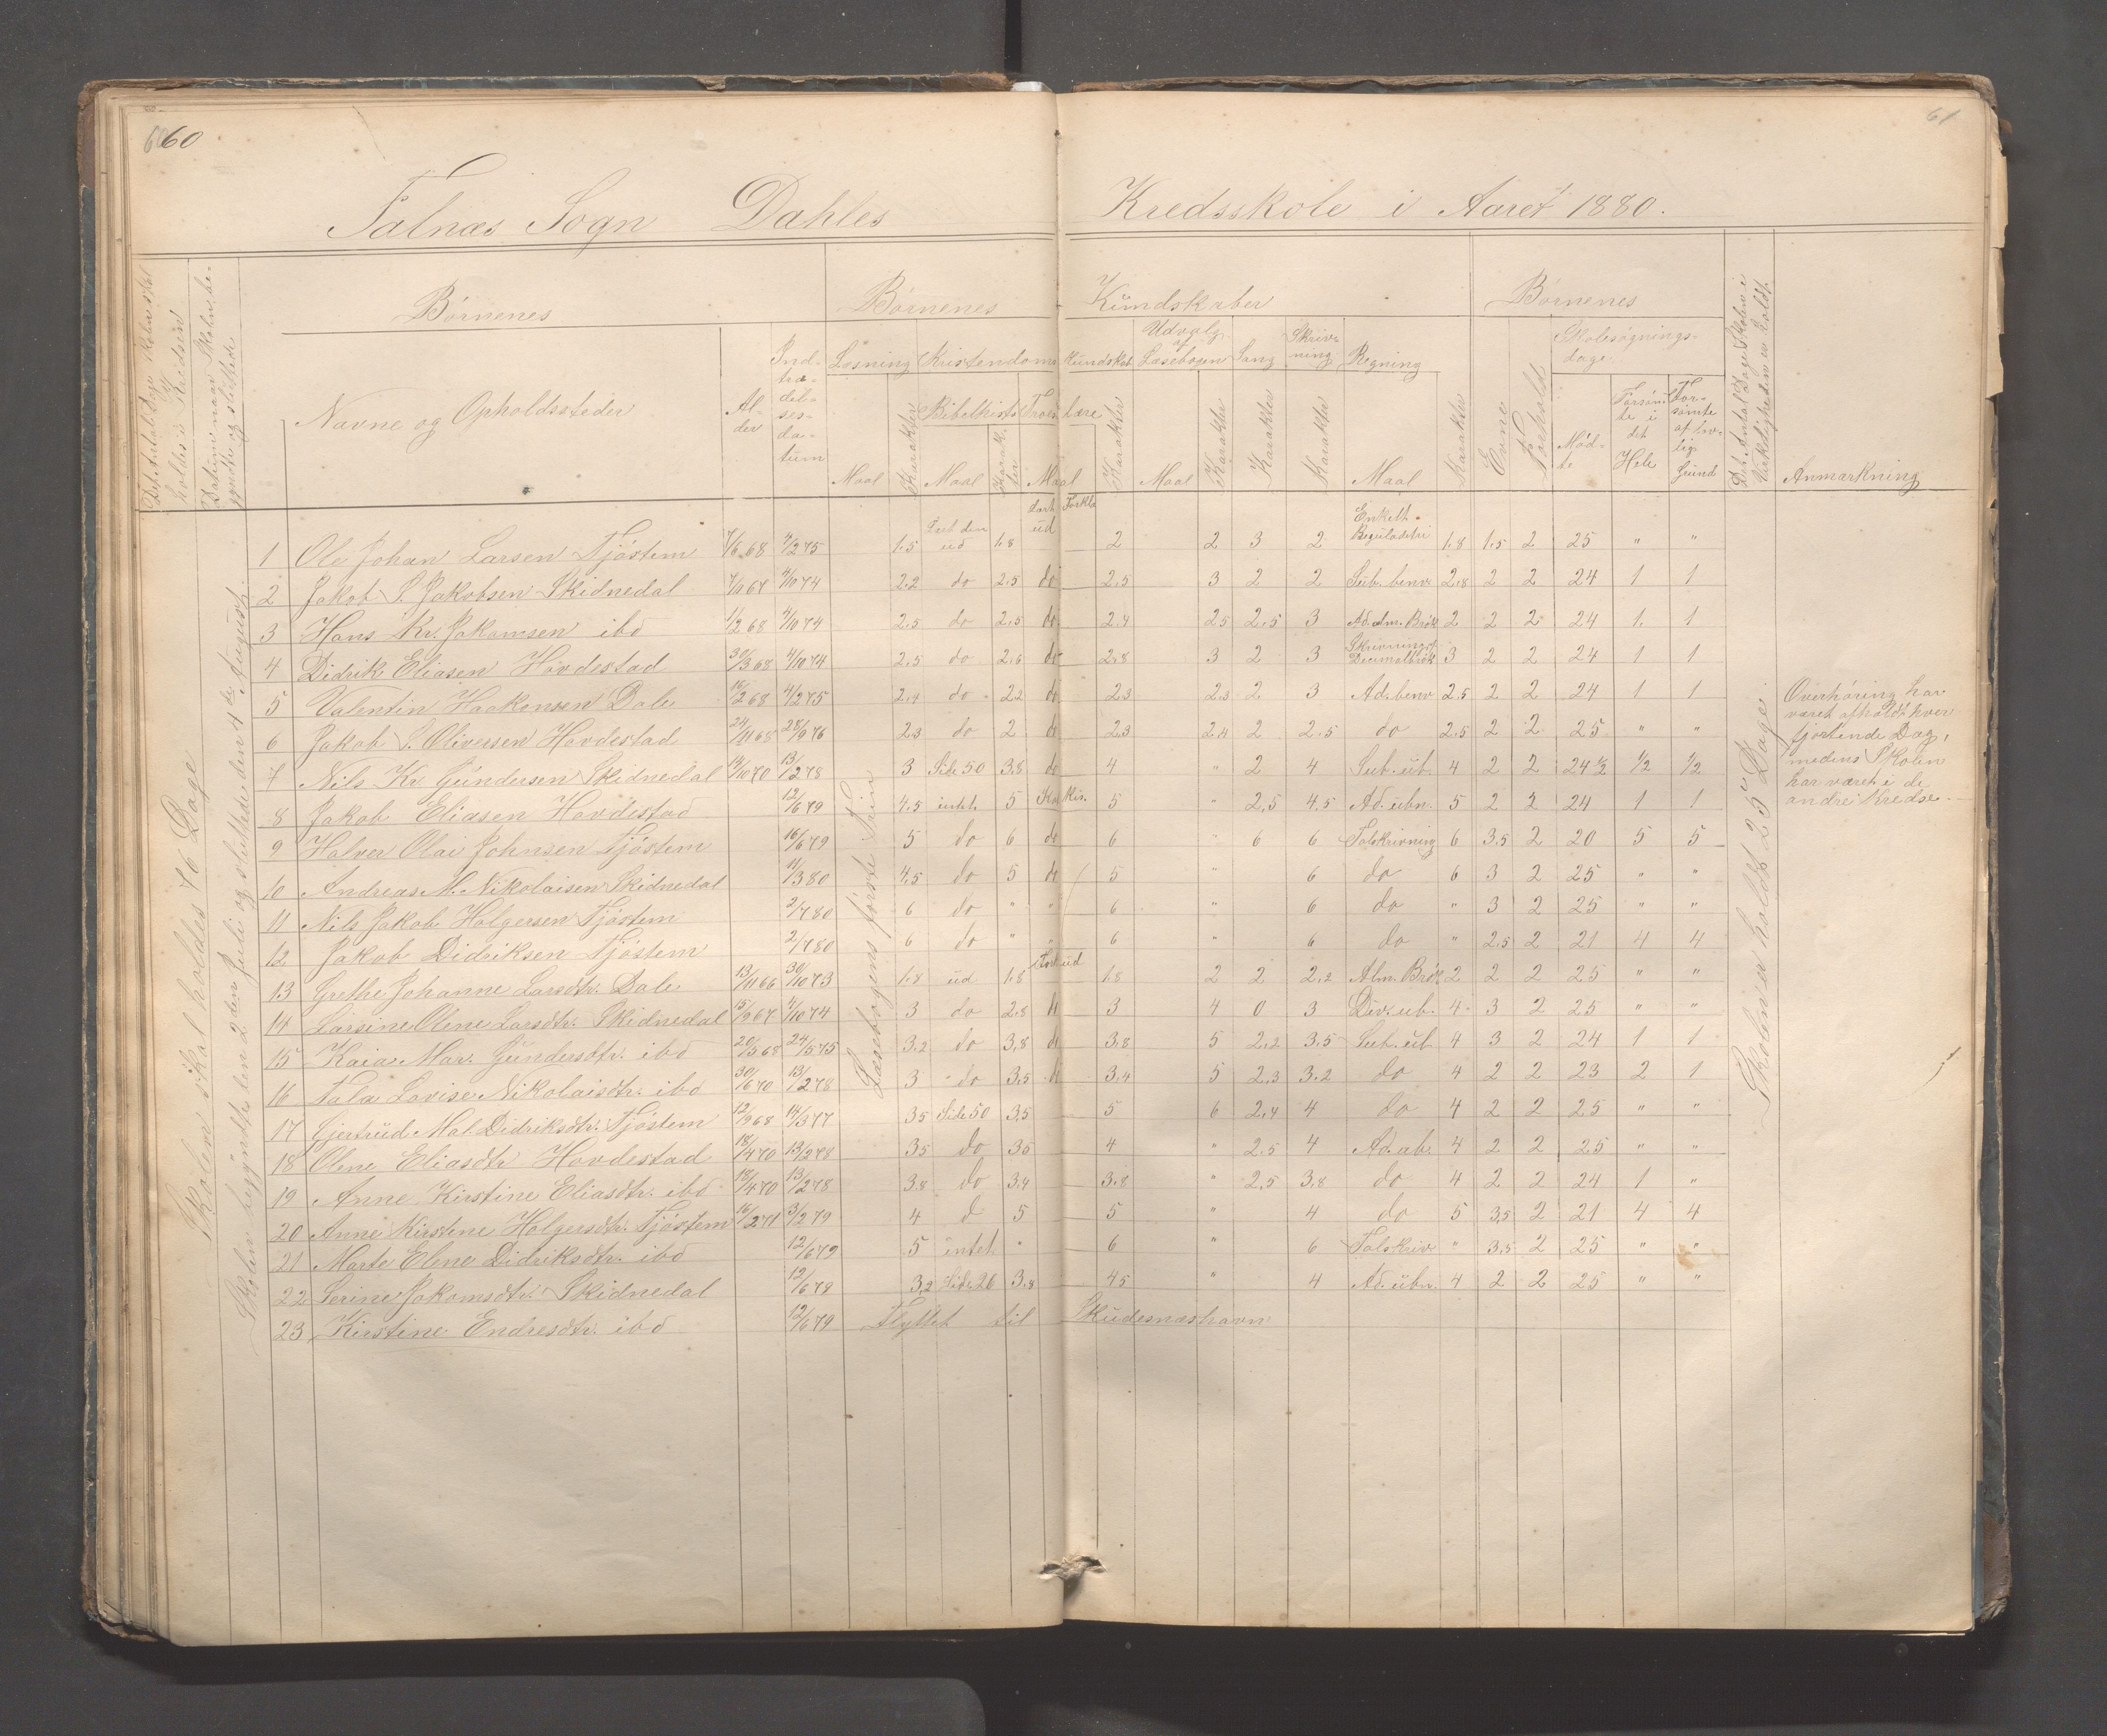 60
61
Falnæs Sogn Dahles Kredsskole i Aaret 1880.
Det Antal Dage Skolen skal holdes i Kredsen
Datum naar Skolen begyndte og sluttede
Børnenes
Børnenes Kundskaber
Børnenes
Det Antal Dage Skolen i Virkeligheden er holdt.
Navne og Opholdssteder
Alder
Indtrædelsesdatum
Læsning Kristendomskundskab
Udvalg af Læsebogen
Sang
Skrivning
Regning
Bibelhist. Troeslære
Maal Karakter Maal Karakter Maal Karakter Maal Karakter Karakter Karakter Maal Karakter
Evne
Forhold
Skolesøgningsdage
Mødte
Forsømte i det Hele
Forsømte af lovlig Grund
Anmærkning
Skolen skal holdes 76 Dage
Skolen begyndtes den 2den Juli og sluttede den 4de August.
Læsebogens første Trin
Skolen er holdt 25 Dage.
1 Ole Johan Larsen Tjøstem 7/6 68 4/2 75 1.5 ud 1.8 ud Forkla 2 2 3 2 Enkelt Reguladetri 1.8 1.5 2 25 " "
2 Jakob S. Jakobsen Skidnedal 7/10 67 4/10 74 2.2 do 2.5 do 2.5 3 2 2 Sub. benv 2.8 2 2 24 1 1
3 Hans Kr. Jakomsen ibd 1/2 68 4/10 74 2.5 do 2.5 do 2.4 2.5 2.5 3 Ad. alm. Brøk 2 2 2 24 1 1
4 Didrik Eliasen Hovdestad 30/3 68 4/10 74 2.5 do 2.6 do 2.8 3 2 3 Skrivning af Decimalbrøk 3 2 2 24 1 1
5 Valentin Haakensen Dale 16/2 68 4/2 75 2.4 do 2.2 do 2.3 2.3 2 3 Ad. benv 2.5 2 2 24 1 1
6 Jakob S. Oliversen Hovdestad 24/11 68 28/9 76 2.3 do 2 do 2.3 2.4 2 2.5 do 2.5 2 2 25 " "
7 Nils Kr Gundersen Skidnedal 14/10 70 13/2 78 3 Side 50 3.8 do 4 " 2 4 Sub. ub. 4 2 2 24 1/2 1/2 1/2
8 Jakob Eliasen Hovdestad 12/6 79 4.5 intet 5 5 " 2,5 4.5 Ad. ubn. 5 2 2 24 1 1
9 Halver Olai Johnsen Tjøstem 16/6 79 5 do 6 do 6 " 6 6 Talskrivning 6 3.5 2 20 5 5
10 Andreas M. Nikolaisen Skidnedal 11/3 80 4,5 do 5 do 5 " 6 do 6 3 2 25 " "
11 Nils Jakob Holgersen Tjøstem 2/7 80 6 do " " 6 " 6 do " 3 2 25 " "
12 Jakob Didriksen Tjøstem 2/7 80 6 do " " 6 " 6 do " 2,5 2 21 4 4
13 Grethe Johanne Larsdtr. Dale 13/11 66 30/10 73 1.8 ud 1.8 ud 1.8 2 2 2,2 Alm. Brøk 2 2 2 25 " "
14 Larsine Olene Larsdtr. Skidnedal 15/9 67 4/10 74 3 do 2.8 do 3 4 0 3 Div. ub. 4 3 2 25 " "
15 Kaia Mar. Gundersdtr. ibd 20/5 68 24/5 75 3,2 do 3,8 do 3,8 5 2,2 3,5 Sub. ub 4 3 2 24 1 1
16 Tala Lovise Nikolaisdtr. ibd 30/6 70 13/2 78 3 do 3,5 do 3,4 5 2,3 3,2 do 4 2 2 23 2 1
17 Gjertrud Mal. Didriksdtr. Tjøstem 12/9 68 14/3 77 3.5 Side 50 3,5 5 6 2,4 4 do 4 2 2 25 " "
18 Olene Eliasdtr Hovdestad 18/4 70 13/2 78 3.5 do 3.5 4 " 2,5 4 Ad. ub. 4 2 2 25 " "
19 Anne Kirstine Eliasdtr. ibd 18/4 70 13/2 78 3.8 do 3,4 3.8 " 2,5 3,8 do 4 2 2 24 1 "
20 Anne Kirstine Holgersdtr. Tjøstem 16/2 71 3/2 79 4 d 5 5 " 4 do 5 3,5 2 21 4 4
21 Marte Elene Didriksdtr. ibd 12/6 79 5 intet " 6 " 6 Talskriv " 3,5 2 25 " "
22 Serine Jakomsdtr. Skidnedal 12/6 79 3,2 Side 26 3,8 4.5 " 4 Ad. ubn. 4 2 2 25 " "
23 Kirstine Endresdtr. ibd 12/6 79 Flyttet til Skudesnæshavn
Overhøring har
været afholdt hver
fjortende Dag,
medens Skolen
har været i de
andre Kredse.